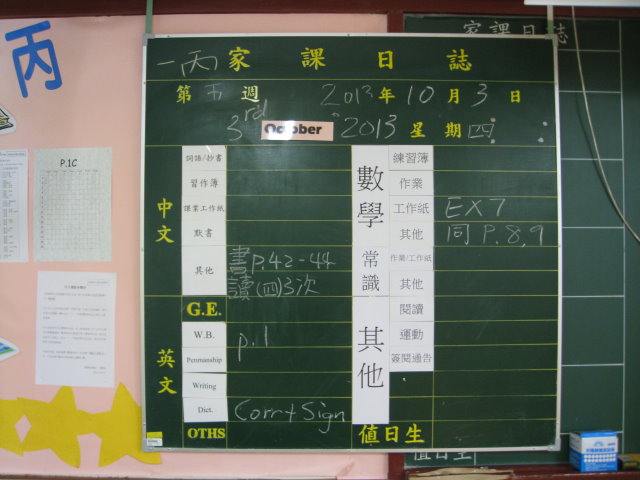 丙
P.1C
家課日誌
一丙 家 課 日 誌
第 五 週 2013 年 10 月 3 日
3rd October 2013 星 期 四
中文
詞語/抄書
習作簿
課業工作紙
默書
其他 書 P.42-44
讀(四)3次
英文
G.E.
W.B. p.1
Penmanship
Writing
Dict. Corr + Sign
OTHS
數學
練習簿
作業
工作紙 EX 7
其他 同 P.8,9
常識
作業/工作紙
其他
其他
閱讀
運動
簽閱通告
值日生
值日生